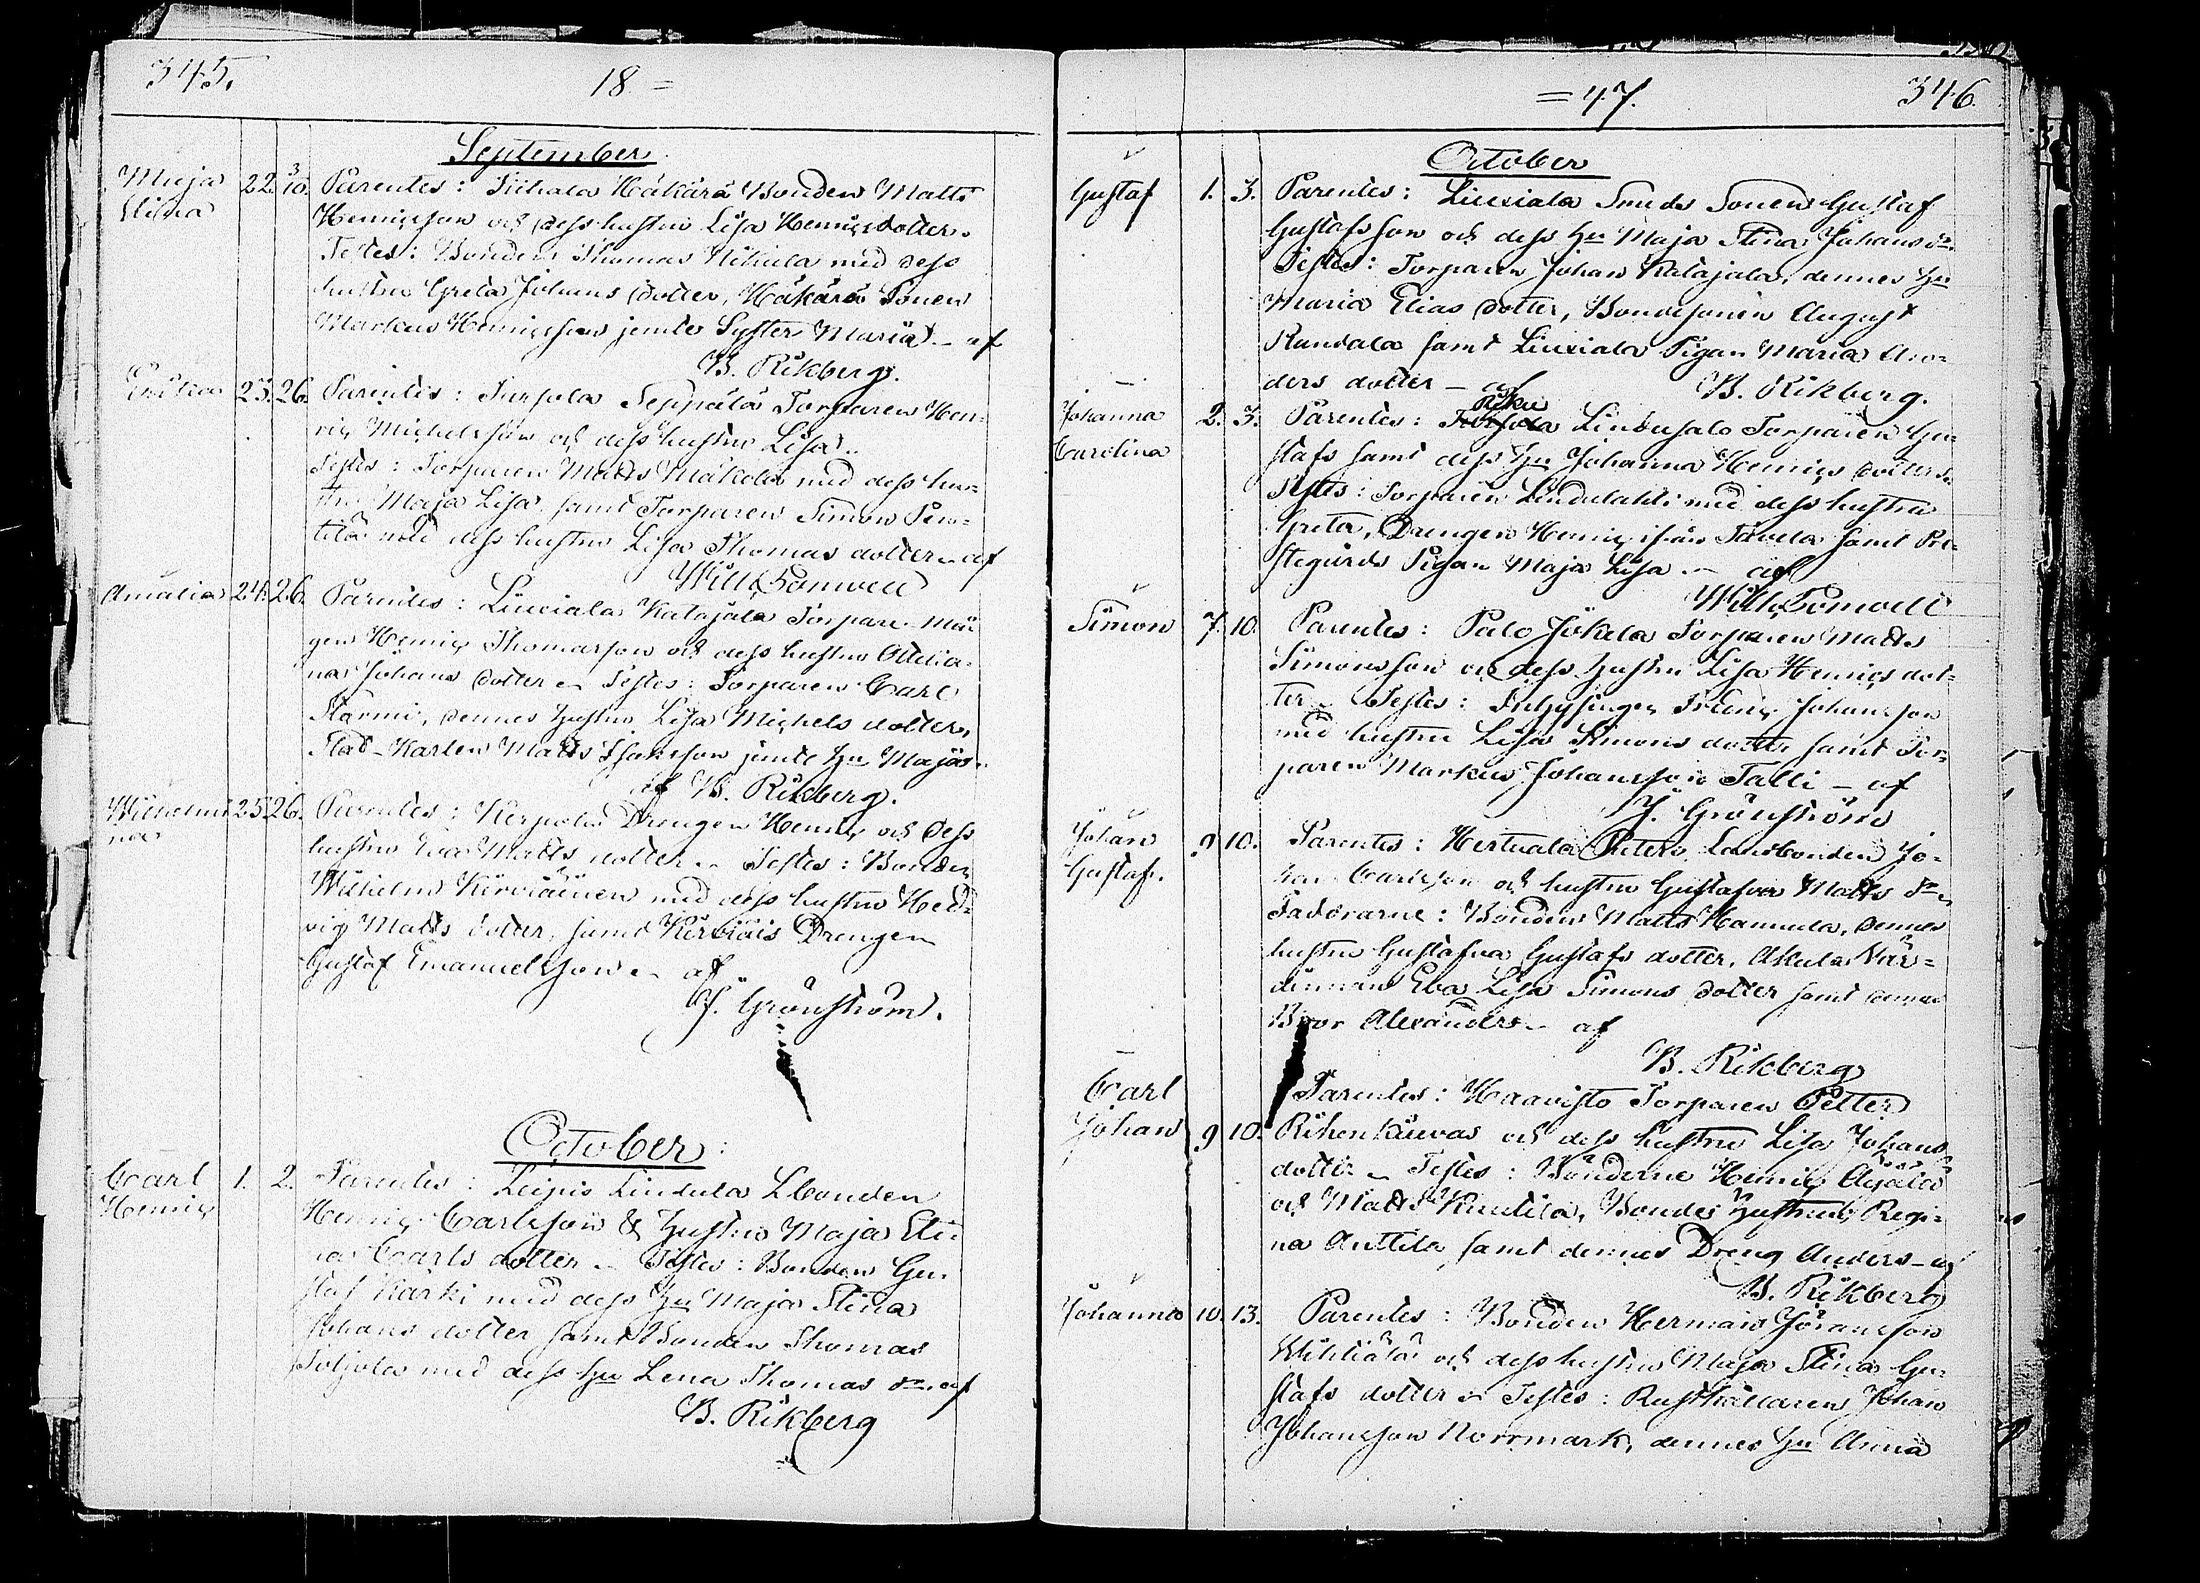 345.
18 =
September
Maja Stina 22. 3/10. Parentes: Sukula Häkärä Bonden Matts
Henricsson och dess hustru Lisa Henricsdotter.
Testes: Bonden Thomas Nikula med dess
hustru Greta Johans dotter, Häkärä Sonen
Markus Henricsson jemte Syster Maria – af
B. Rikberg.
Erika 23. 26. Parentes: Seppälä Torparen Hen=
ric Michelsson och dess hustru Lisa
Testes: Torparen Matts Mäkelä med dess hu=
stru Maja Lisa, samt Torparen Simon Pen=
tilä med dess hustru Lisa Thomas dotter – af
Wilh. Ponwell
Amalia 24. 26. Parentes: Katajala Torpare Må=
gen Henric Thomasson och dess hustru
Johans dotter – Testes: Torparen Carl
dennes hustru Lisa Michels dotter,
Karlen Matts Isaksson jemte hu Maja
af B. Rikberg.
Wilhelmi=
na 25. 26. Parentes: Kerpola Drengen Henric och dess
hustru Eva Matts dotter – Testes: Bonden
Wilhelm med dess hustru Hed=
vig Matts dotter, samt Drengen
Gustaf Emanuelsson – af
J. Grönström.
October:
Carl Henric 1. 2. Parentes: Leipis Lindula Lbonden
Henric Carlsson & hustru Maja Sti=
na Carls dotter – Testes: Bonden Gu=
staf Kärki med dess hu Maja Stina
Johans dotter samt Bonden Thomas
med dess hu Lena Thomas dr. af
B. Rikberg
= 47.
346.
October
Gustaf 1. 3. Parentes: Sonen Gustaf
Gustafsson och dess hu Maja Stina Johans dr.
Testes: Torparen Johan Katajala, dennes hu
Maria Elias dotter, Bondesonen August
samt Pigan Maria An=
ders dotter – af B. Rikberg.
Johanna
Carolina 2. 3. Parentes: Lindusalo Torparen Gu=
stafs samt dess hu Johanna Henrics dotter
Testes: Torparen Lindulahti med dess hustru
Greta, Drengen Henric ifrån Tavela samt Pre=
stegårds Pigan Maja Lisa – af
Wilh. Ponwell
Simon 7. 10. Parentes: Palo Jokela Torparen Matts
Simonsson och dess hustru Lisa Henrics dot=
ter – Testes: Johansson
med hustru Lisa Simons dotter samt Tor=
paren Markus Johansson Talli – af
J. Grönström
Johan
Gustaf. 9 10. Parentes: Hertuala Landbonden Jo=
han Carlsson och hustru Gustafva Matts dr.
Faddrarne: Bonden Matts Hannula, dennes
hustru Gustafva Gustafs dotter, Akula Vär=
dinnan Eva Lisa Simons dotter samt dennes
Bror Alexander – af
B. Rikberg
Carl
Johan 9 10. Parentes: Haavisto Torparen Petter
och dess hustru Lisa Johans
dotter – Testes: Bönderne Henric
och Matts Knutila, Bondes hustrun Regi=
na Anttila samt dennes Dreng Anders – af
B. Rikberg
Johanna 10. 13. Parentes: Bonden Herman Göransson
och dess hustru Maja Stina Gu=
stafs dotter – Testes: Rusthållaren Johan
Johansson Norrmark, dennes hu Anna